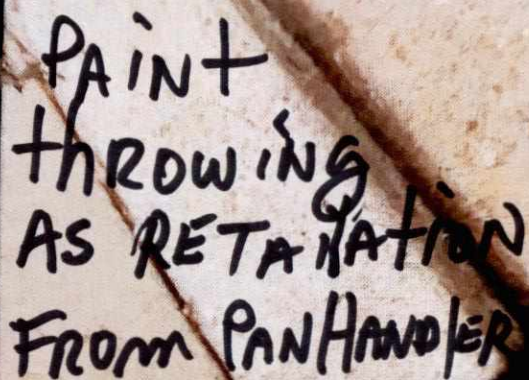 PAiNt
thROWiNG
AS RETAliAtioN
FROm PANHANDlER